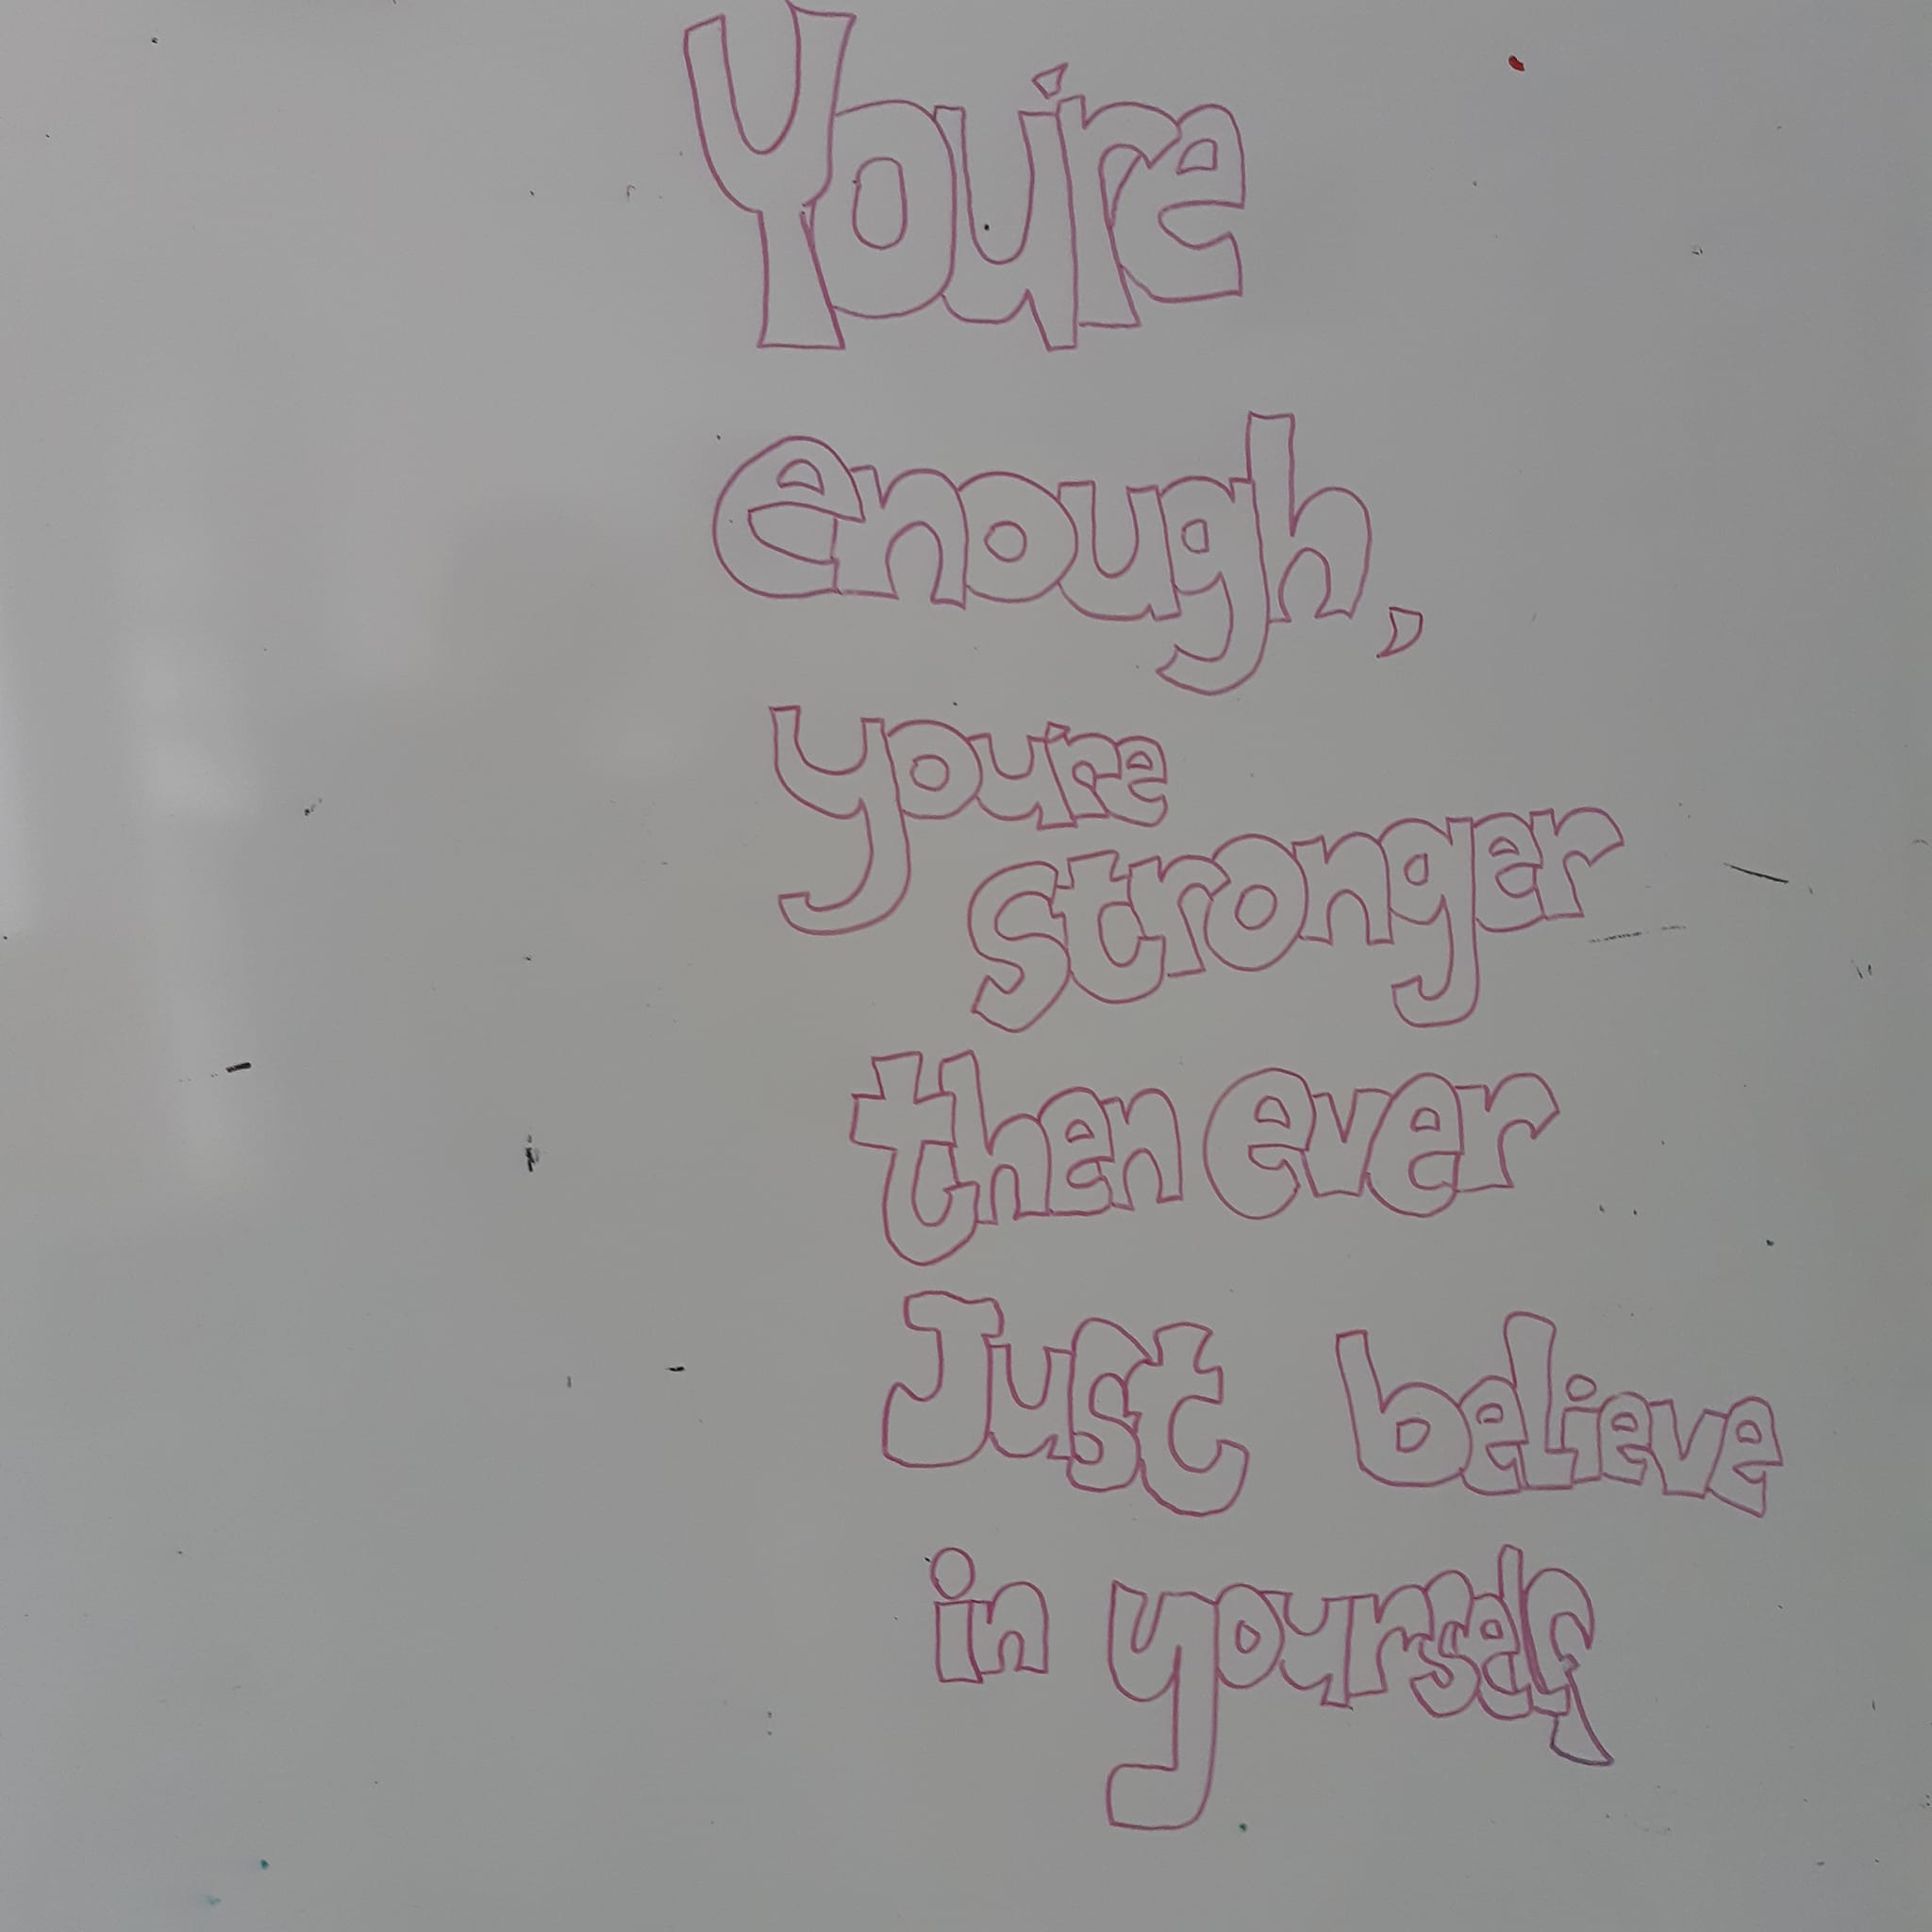 You're
enough,
you're
stronger
then ever
Just believe
in yourself